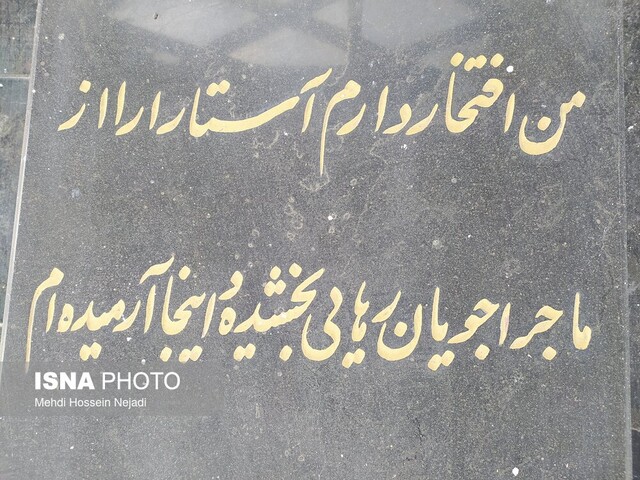 من افتخار دارم آستارا را از
ماجراجویان رهایی بخشیده و اینجا آرمیده ام
ISNA PHOTO
Mehdi Hossein Nejadi